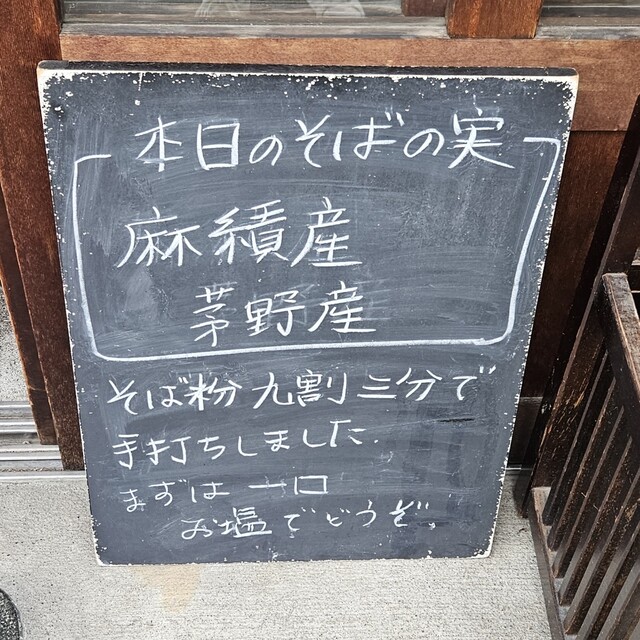 本日のそばの実
麻績産
茅野産
そば粉九割三分で
手打ちしました.
まずは一口
お塩でどうぞ。